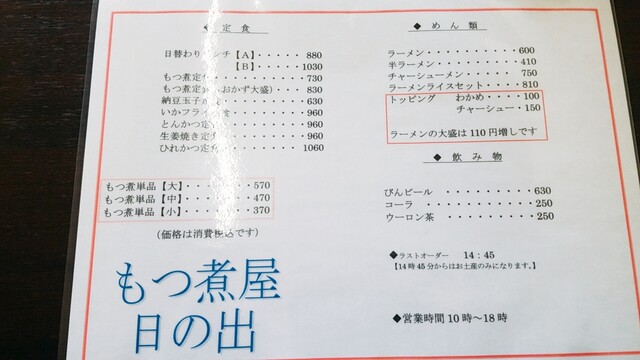 ◆ 定 食
日替わり ンチ【A】・・・・・・ 880
【B】・・・・・・1030
もつ煮定 ・・・・・・・・・730
もつ煮定 おかず大盛)・・・ 830
納豆玉子 食・・・・・・・・630
いかフライ 食・・・・・・・・960
とんかつ定 ・・・・・・・・960
生姜焼き定 ・・・・・・・・960
ひれかつ定 ・・・・・・・ 1060
もつ煮単品【大】・・・・・・・570
もつ煮単品【中】・・・・・・・470
もつ煮単品【小】・・・・・・・370
(価格は消費税込です)
もつ煮屋
日の出
◆ め ん 類
ラーメン・・・・・・・・・・600
半ラーメン・・・・・・・・・410
チャーシューメン・・・・・・ 750
ラーメンライスセット・・・・810
トッピング わかめ・・・・100
チャーシュー・150
ラーメンの大盛は 110 円増しです
◆ 飲 み 物
びんビール ・・・・・・・・・630
コーラ ・・・・・・・・・・・250
ウーロン茶 ・・・・・・・・・250
◆ラストオーダー 14：45
【14 時 45 分からはお土産のみになります。】
◆営業時間 10 時～18 時